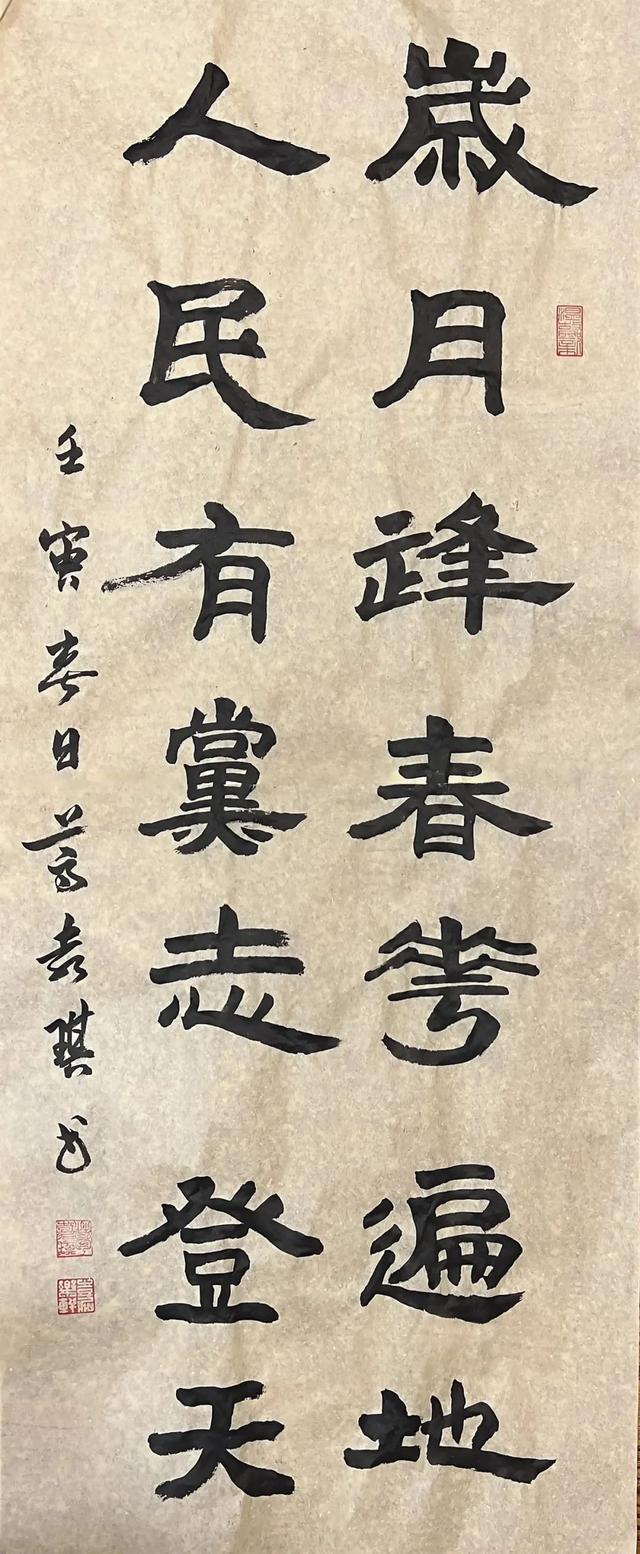 歲月逢春花遍地
人民有黨志登天
壬寅春日袁琪书